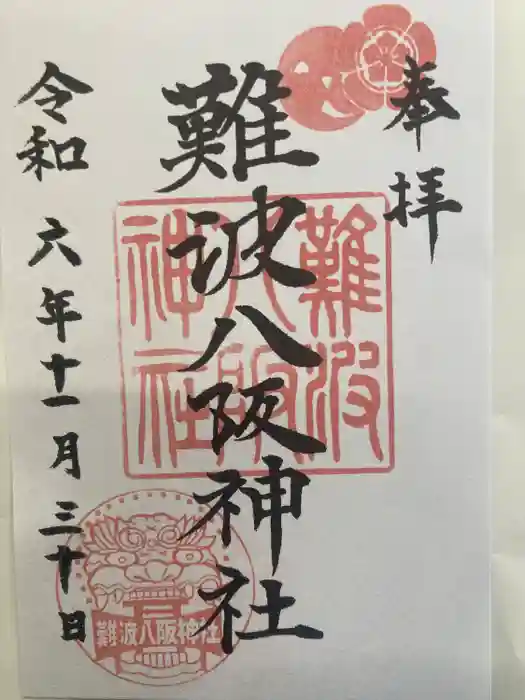 奉拝
難波八阪神社
令和六年十一月三十日
難波
八阪
神社
難波八阪神社